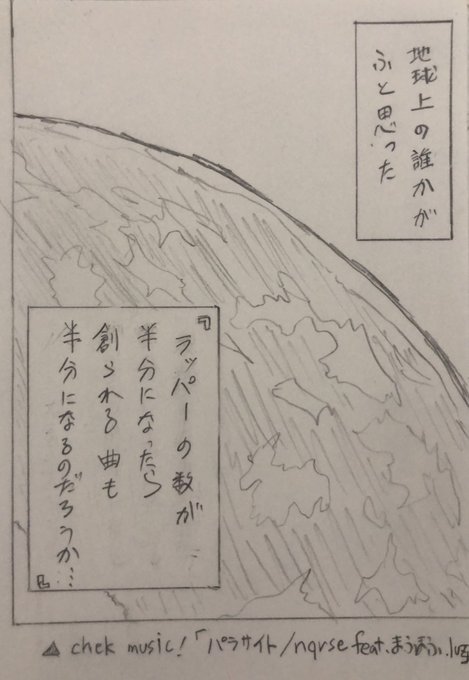 地球上の誰かが
ふと思った
『ラッパーの数が
半分になったら
創られる曲も
半分になるのだろうか…』
▲ chek music!「パラサイト/nqrse feat.まふまふ.luz